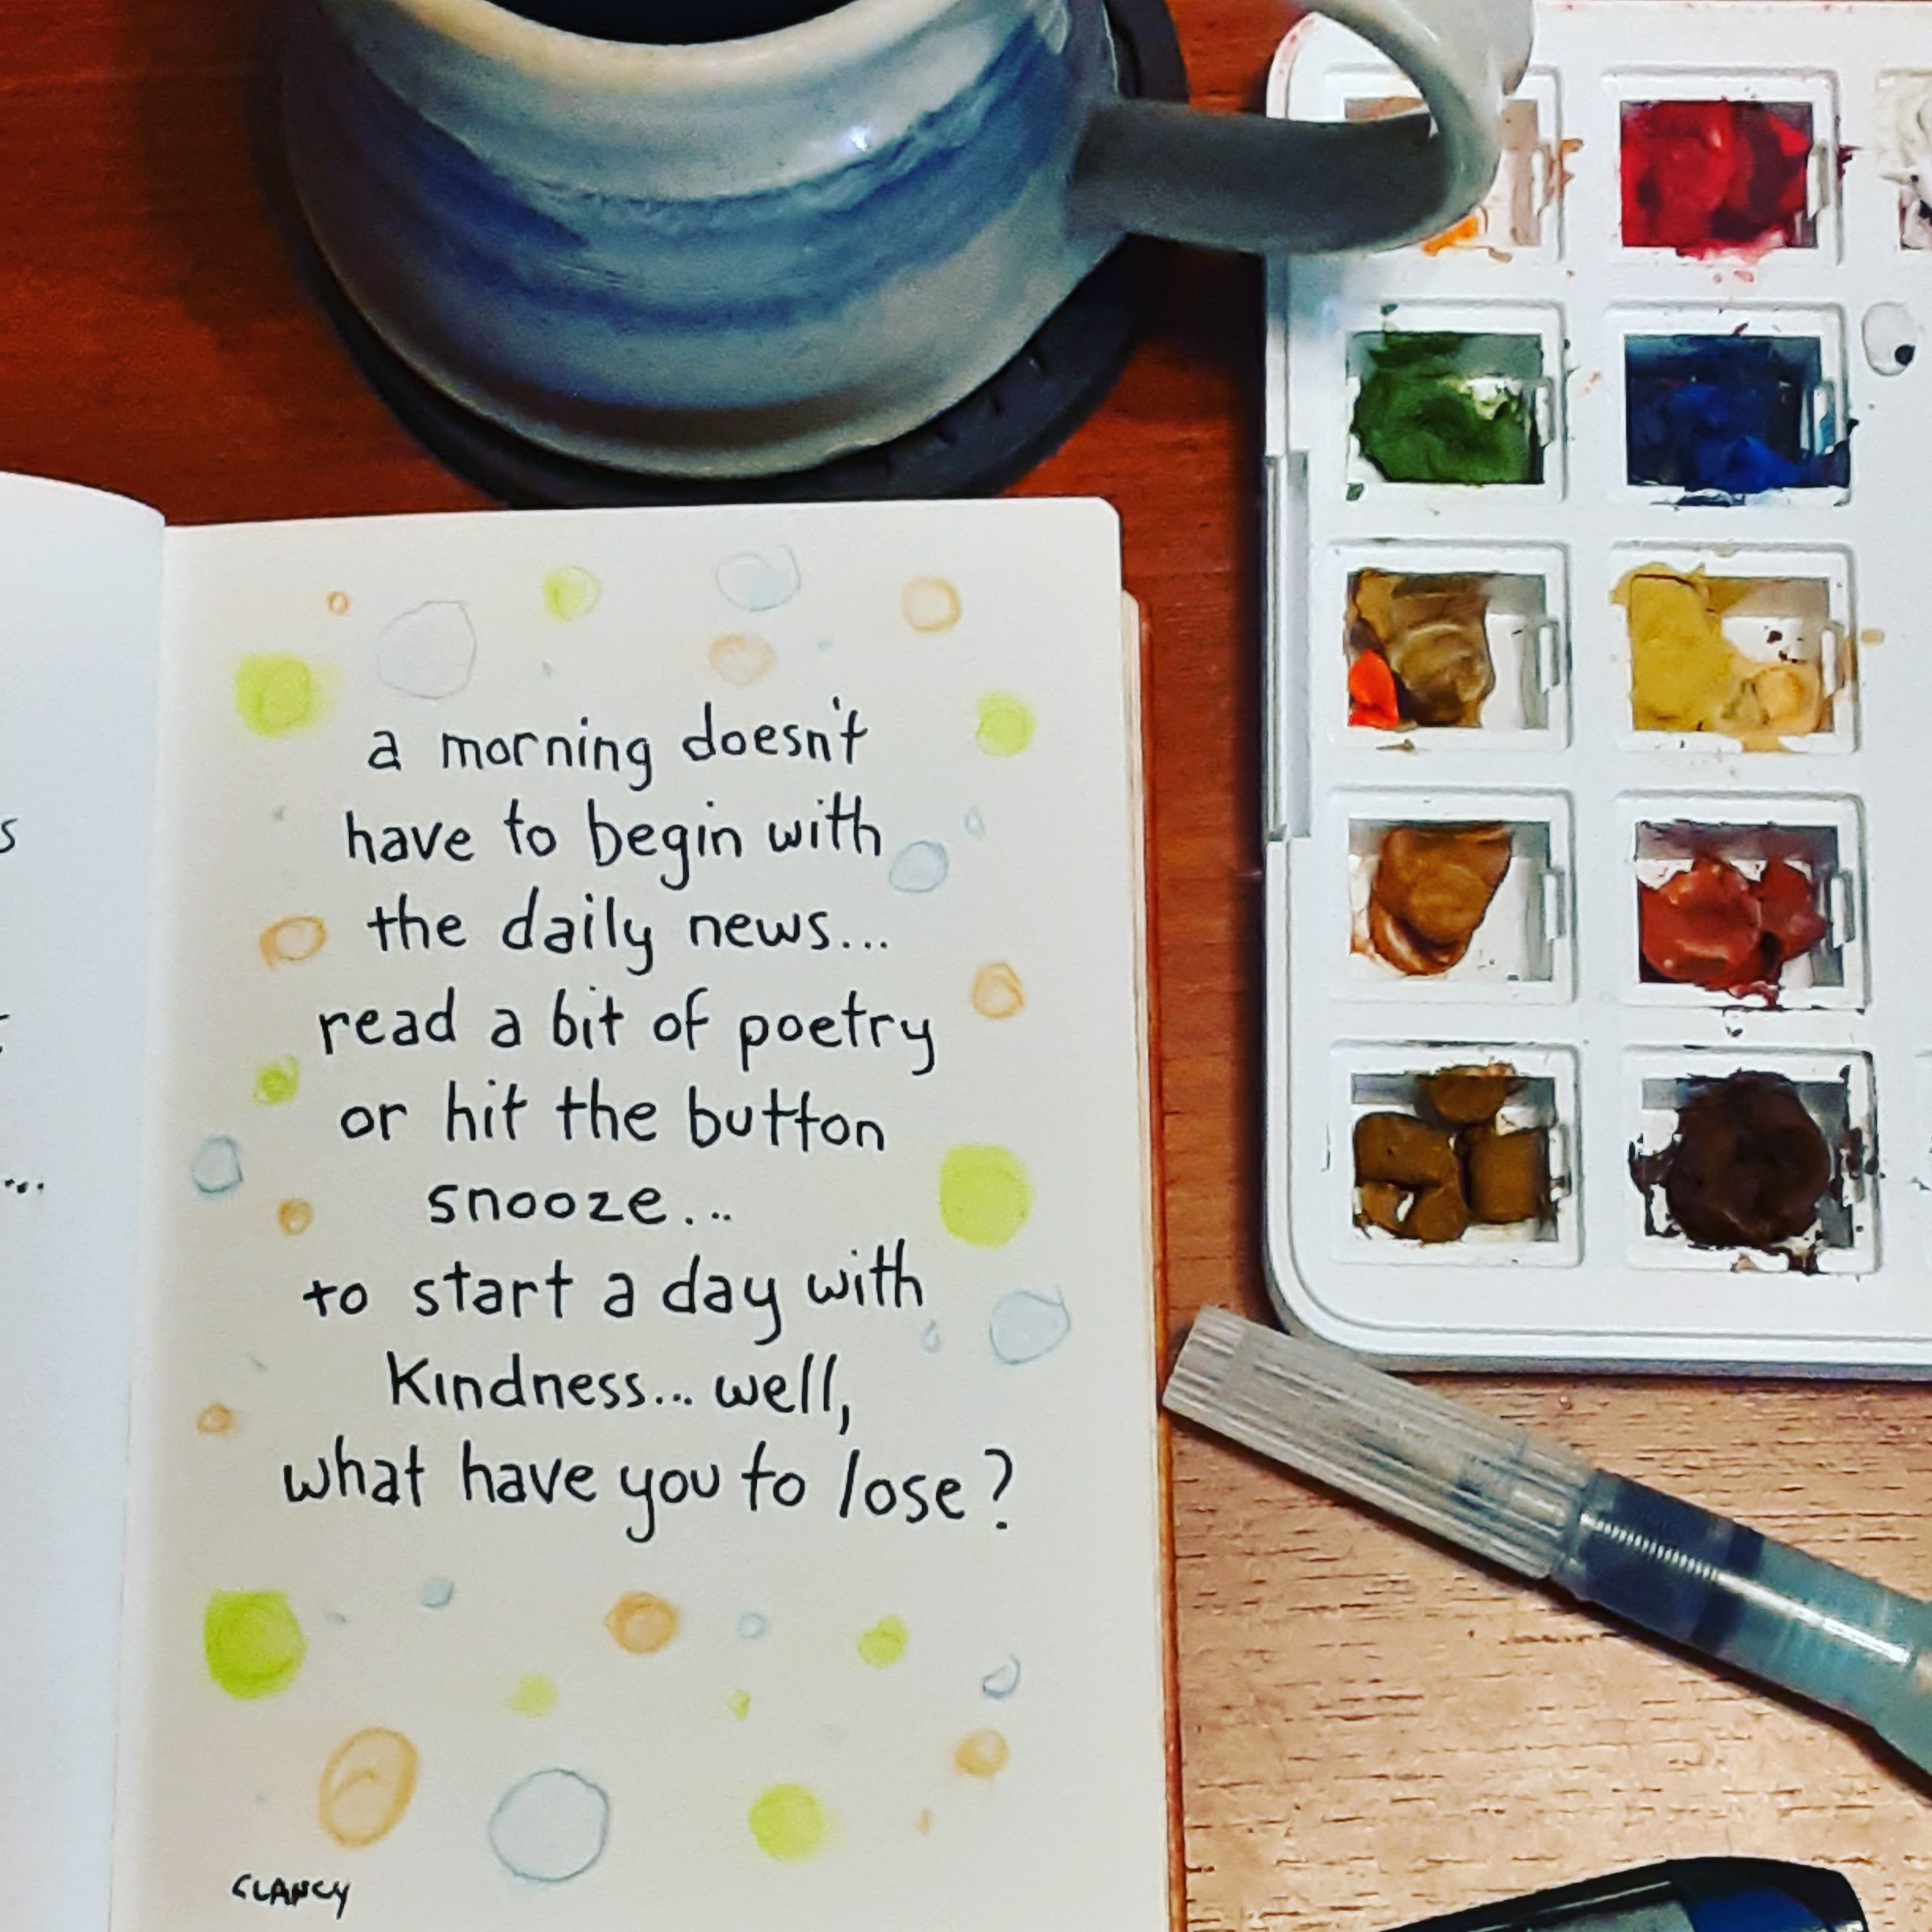 a morning doesn't
have to begin with
the daily news...
read a bit of poetry
or hit the button
snooze...
to start a day with
kindness... well,
what have you to lose?
CLANCY